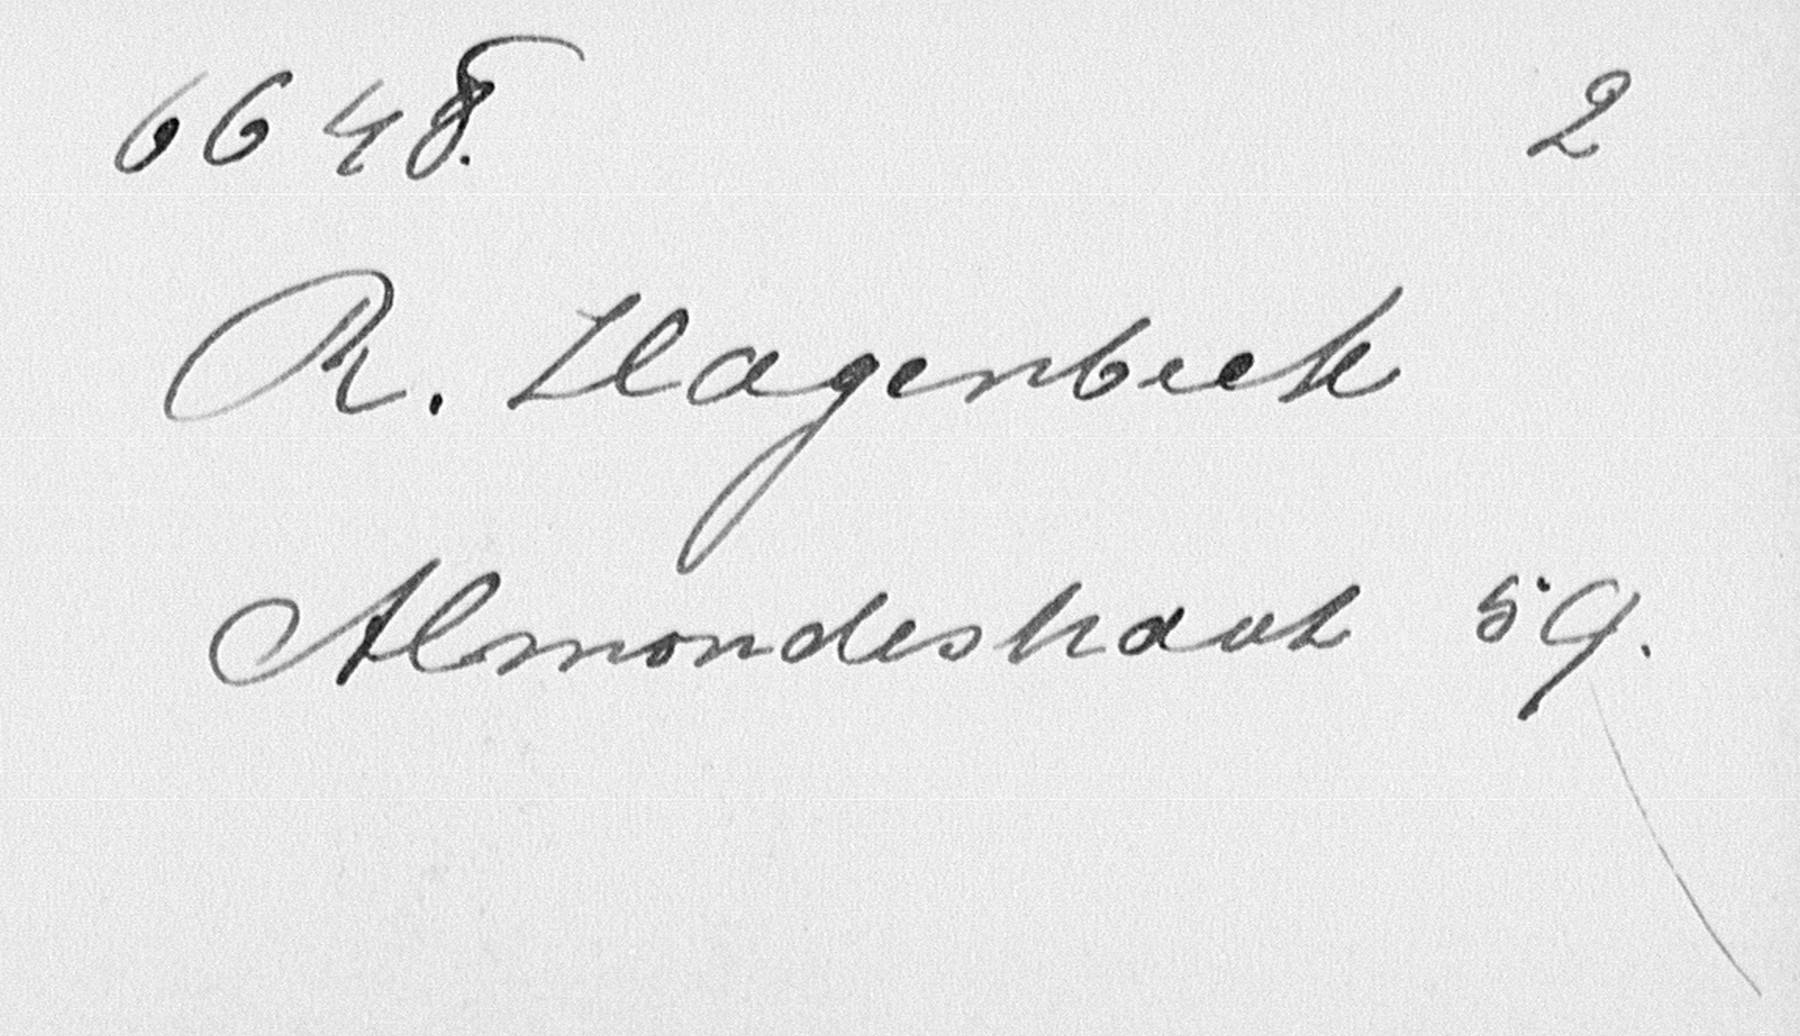 6648. 2
R. Hagenbeek
Almondestraat 59.